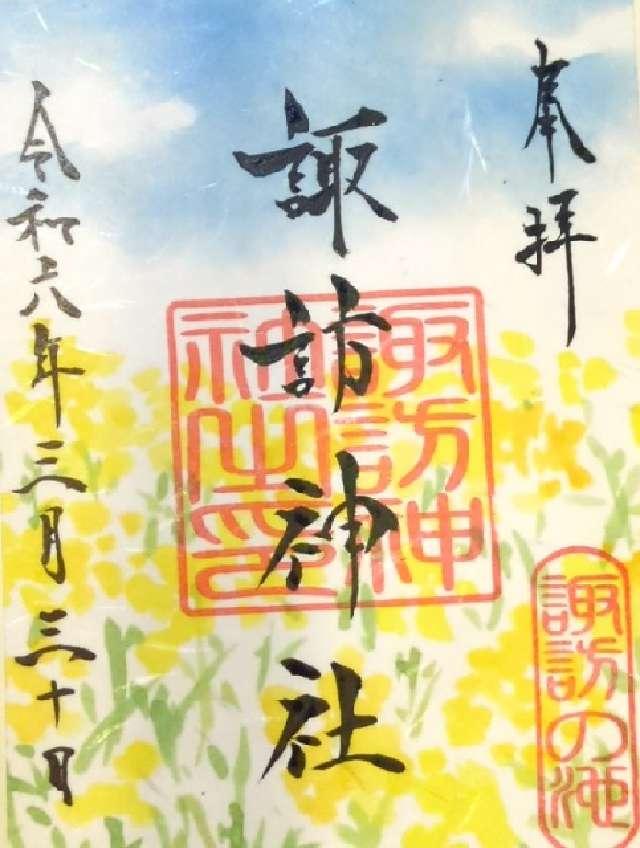 奉拝
諏訪神社
諏訪神社之印
諏訪の池
令和六年三月三十日